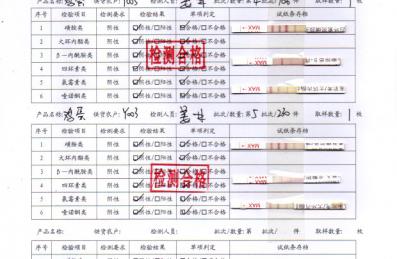 产品名称: 鸡蛋 供货农户: Y003 检测人员: 批次/数量: 第4 件 取样数量: 1 枚
序号 检验项目 检测要求 检验结果 单项判定 试纸条存档
1 磺胺类 阴性 ☑阴性/□阳性 ☑合格/□不合格
2 大环内酯类 阴性 ☑阴性/□阳性 ☑合格/□不合格
3 β-内酰胺类 阴性 ☑阴性/□阳性 ☑合格/□不合格
4 四环素类 阴性 ☑阴性/□阳性 ☑合格/□不合格
5 氟霉素类 阴性 ☑阴性/□阳性 ☑合格/□不合格
6 喹诺酮类 阴性 ☑阴性/□阳性 ☑合格/□不合格
检测合格
MAX
MAX
MAX
产品名称: 鸡蛋 供货农户: Y003 检测人员: 批次/数量: 第5 批次/ 230 件 取样数量: 1 枚
序号 检验项目 检测要求 检验结果 单项判定 试纸条存档
1 磺胺类 阴性 ☑阴性/□阳性 ☑合格/□不合格
2 大环内酯类 阴性 ☑阴性/□阳性 ☑合格/□不合格
3 β-内酰胺类 阴性 ☑阴性/□阳性 ☑合格/□不合格
4 四环素类 阴性 ☑阴性/□阳性 ☑合格/□不合格
5 氟霉素类 阴性 ☑阴性/□阳性 ☑合格/□不合格
6 喹诺酮类 阴性 ☑阴性/□阳性 ☑合格/□不合格
检测合格
MAX
MAX
产品名称: 供货农户: 检测人员: 批次/数量: 第 批次/ 件 取样数量: 枚
序号 检验项目 检测要求 检验结果 单项判定 试纸条存档